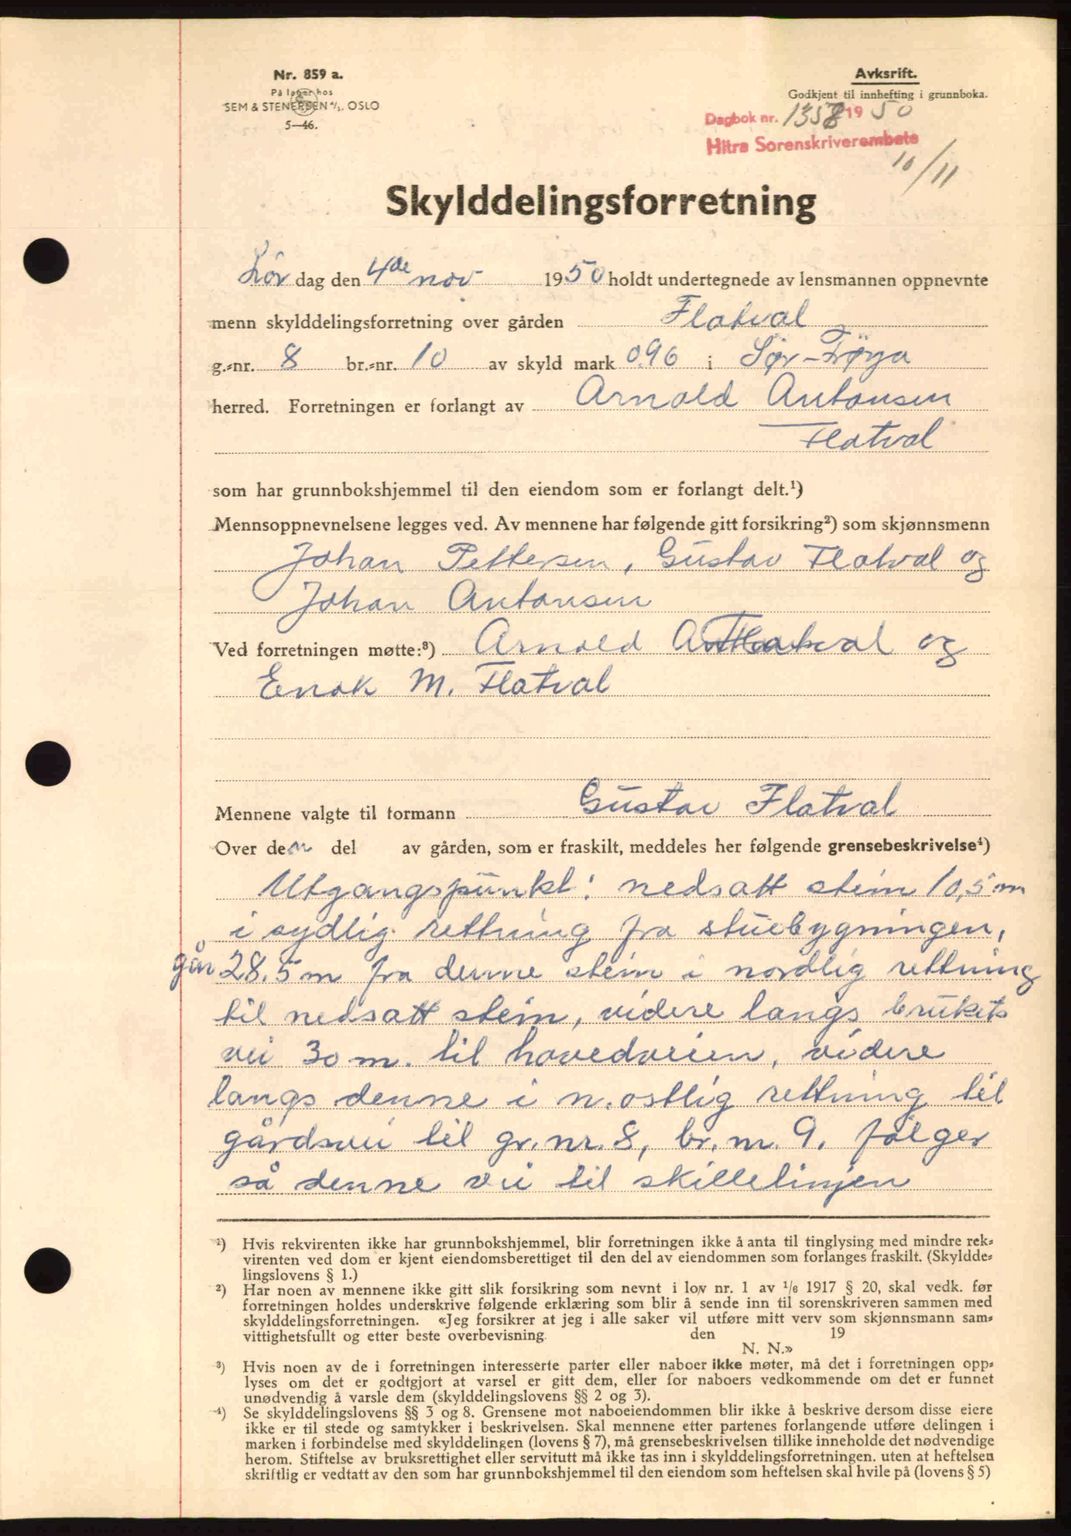 Nr. 859 a.
På lager hos
SEM & STENERSEN A/S. OSLO
5—46.
Avksrift.
Godkjent til innhefting i grunnboka.
Dagbok nr. 1358 1950
Hitra Sorenskriverembete
10/11
Skylddelingsforretning
Lør dag den 4de nov 1950 holdt undertegnede av lensmannen oppnevnte
menn skylddelingsforretning over gården Flatval
g.-nr. 8 br.-nr. 10 av skyld mark 0.96 i Sør-Frøya
herred. Forretningen er forlangt av Arnold Antonsen
Flatval
som har grunnbokshjemmel til den eiendom som er forlangt delt.¹)
Mennsoppnevnelsene legges ved. Av mennene har følgende gitt forsikring²) som skjønnsmenn
Johan Pettersen, Gustav Flatval og
Johan Antonsen
Ved forretningen møtte:³) Arnold Flatval og
Enok M. Flatval
Mennene valgte til formann Gustav Flatval
Over den del av gården, som er fraskilt, meddeles her følgende grensebeskrivelse⁴)
Utgangspunkt: nedsatt stein 10,5 m
i sydlig rettning fra stuebygningen,
går 28.5 m fra denne stein i nordlig rettning
til nedsatt stein, videre langs brukets
vei 30 m. til hovedveien, videre
langs denne i n.ostlig rettning til
gårdsvei til gr.nr. 8, br.nr. 9. følger
så denne vei til skillelinjen
¹) Hvis rekvirenten ikke har grunnbokshjemmel, blir forretningen ikke å anta til tinglysing med mindre rek-
virenten ved dom er kjent eiendomsberettiget til den del av eiendommen som forlanges fraskilt. (Skyldde-
lingslovens § 1.)
²) Har noen av mennene ikke gitt slik forsikring som nevnt i lov nr. 1 av 1/6 1917 § 20, skal vedk. før
forretningen holdes underskrive følgende erklæring som blir å sende inn til sorenskriveren sammen med
skylddelingsforretningen. «Jeg forsikrer at jeg i alle saker vil utføre mitt verv som skjønnsmann sam-
vittighetsfullt og etter beste overbevisning. den 19
N. N.»
³) Hvis noen av de i forretningen interesserte parter eller naboer ikke møter, må det i forretningen opp-
lyses om det er godtgjort at varsel er gitt dem, eller for naboers vedkommende om det er funnet
unødvendig å varsle dem (skylddelingslovens §§ 2 og 3).
⁴) Se skylddelingslovens §§ 3 og 8. Grensene mot naboeiendommen blir ikke å beskrive dersom disse eiere
ikke er til stede og samtykker i beskrivelsen. Skal mennene etter partenes forlangende utføre delingen i
marken i forbindelse med skylddelingen (lovens § 7), må grensebeskrivelsen tillike inneholde det nødvendige
herom. Stiftelse av bruksrettighet eller servitutt må ikke tas inn i skylddelingsforretningen. uten at heftelsen
skriftlig er vedtatt av den som har grunnbokshjemmel til den eiendom som heftelsen skal hvile på (lovens § 5)